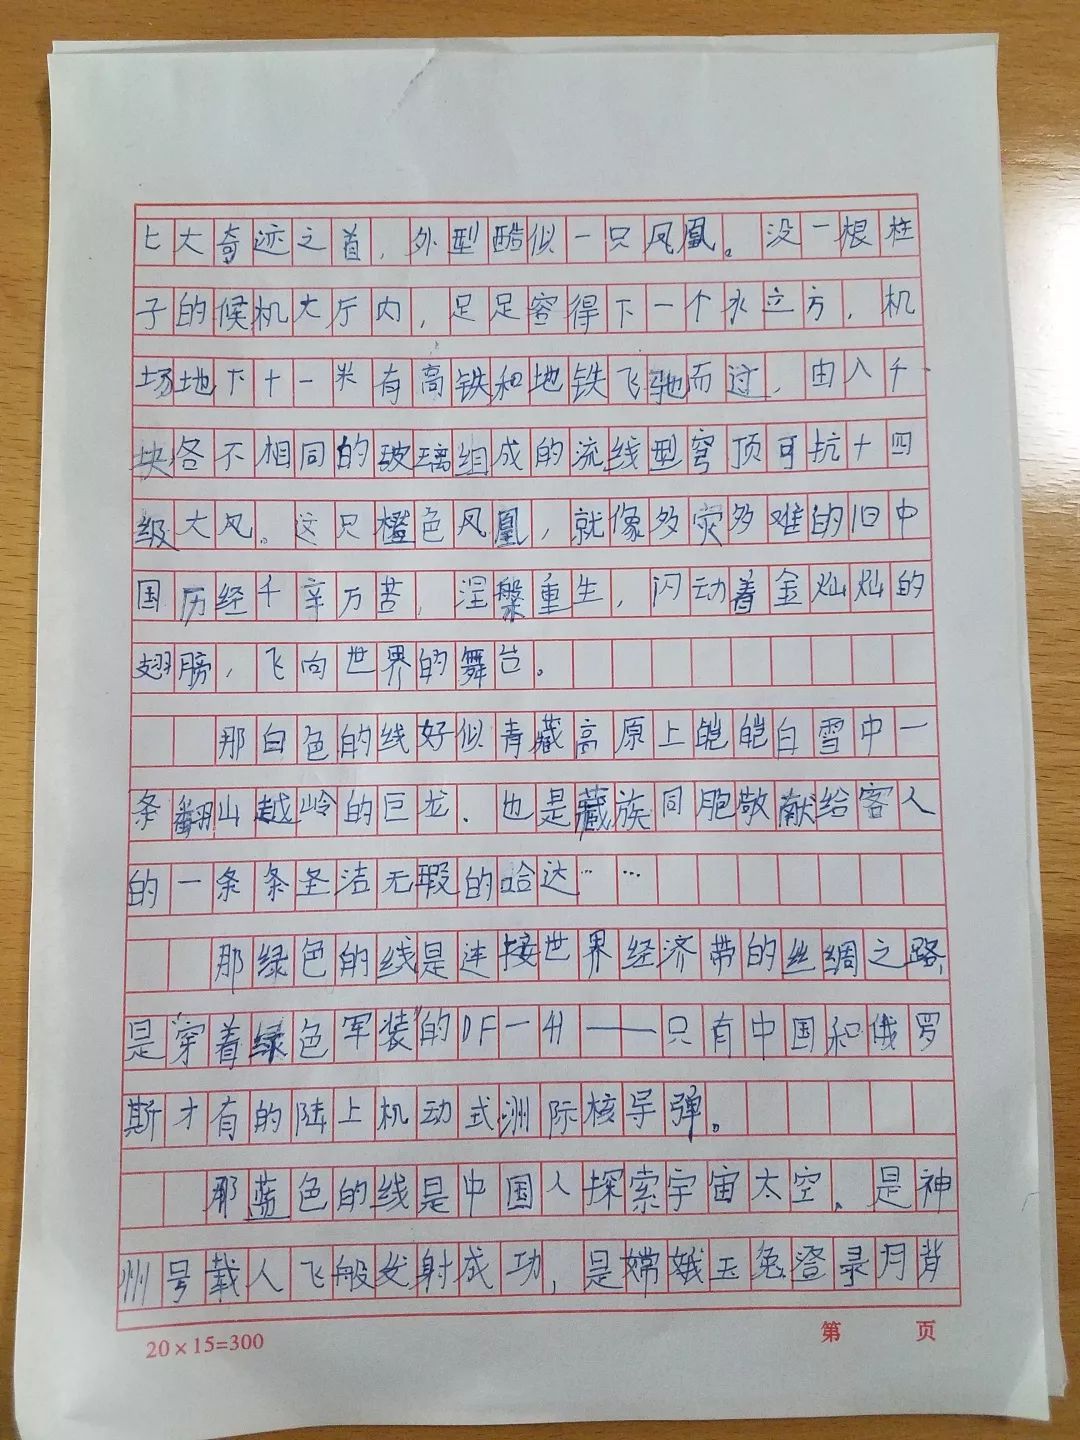 七大奇迹之首，外型酷似一只凤凰。没一根柱
子的候机大厅内，足足容得下一个水立方，机
场地下十一米有高铁和地铁飞驰而过，由八千
块各不相同的玻璃组成的流线型穹顶可抗十四
级大风。这只橙色凤凰，就像多灾多难的旧中
国历经千辛万苦，涅槃重生，闪动着金灿灿的
翅膀，飞向世界的舞台。
那白色的线好似青藏高原上皑皑白雪中一
条翻山越岭的巨龙．也是藏族同胞敬献给客人
的一条条圣洁无瑕的哈达……
那绿色的线是连接世界经济带的丝绸之路，
是"穿着绿色军装"的DF—41——只有中国和俄罗
斯才有的陆上机动式洲际核导弹。
那蓝色的线是中国人探索宇宙太空、是神
州号载人飞船发射成功，是嫦娥玉兔登录月背
20×15=300
第 页